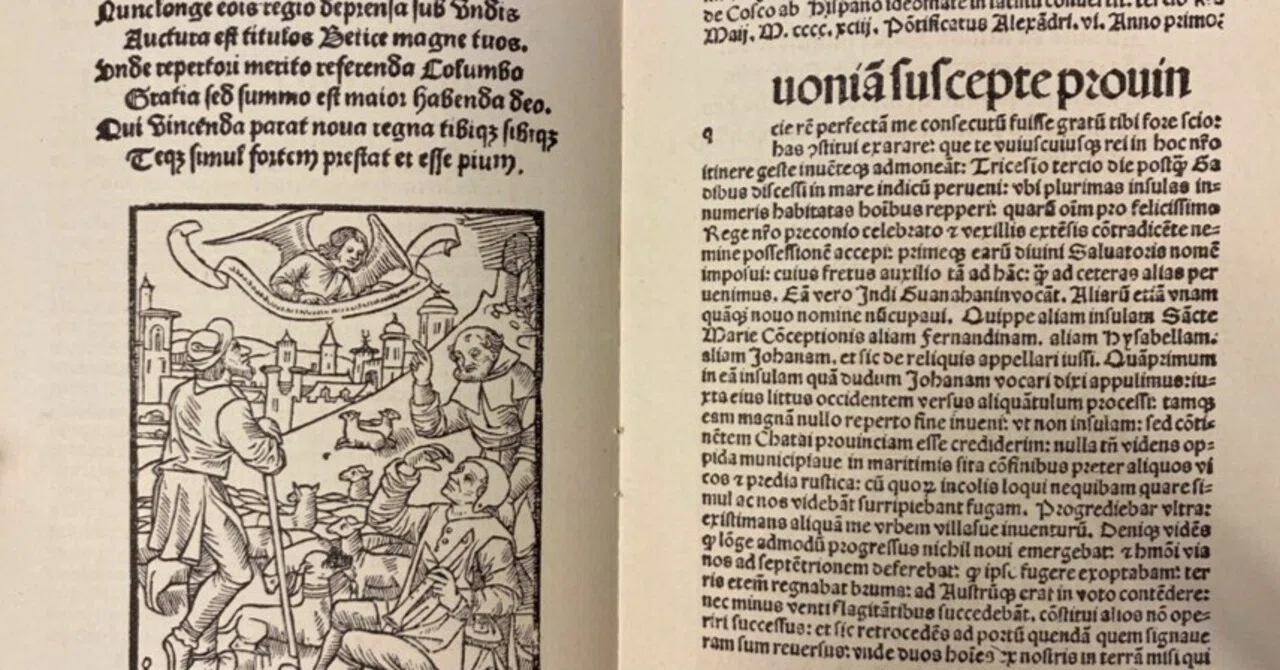 Nunc longe eois regio deprensa sub vndis
Auctura est titulos Betice magne tuos.
Vnde repertori merito referenda Columbo
Gratia sed summo est maior habenda deo.
Qui vincenda parat noua regna tibiqꝫ sibiqꝫ
Teqꝫ simul fortem prestat et esse pium.
de Cosco ab Hispano ideomate in latinū conuertit: tercio kaƚs
Maij. M. cccc. xciij. Pōtificatus Alexādri. vi. Anno primo:
uoniā suscepte prouin
q
cie rē perfectā me consecutū fuisse gratū tibi fore scio:
has ꝯstitui exarare: que te vniuscuiusqꝫ rei in hoc nr̄o
itinere geste inuēteqꝫ admoneāt: Tricesio tercio die postqꝫ Ga
dibus discessi in mare indicū perueni: vbi plurimas insulas in⸗
numeris habitatas hoībus repperi: quarū oīm pro felicissimo
Rege nr̄o preconio celebrato ⁊ vexillis extēsis cōtradicēte ne⸗
mine possessionē accepi: primeqꝫ earū diuini Saluatoris nomē
imposui: cuius fretus auxilio tā ad hāc: q̄ꝫ ad ceteras alias per
uenimus. Eā vero Indi Guanahanin vocāt. Aliarū etiā vnam
quāqꝫ nouo nomine nūcupaui. Quippe aliam insulam Sācte
Marie Cōceptionis aliam Fernandinam. aliam Hysabellam.
aliam Johanam. et sic de reliquis appellari iussi. Quāprimum
in eā insulam quā dudum Johanam vocari dixi appulimus: iu⸗
xta eius littus occidentem versus aliquātulum processi: tamqꝫ
eam magnā nullo reperto fine inueni: vt non insulam: sed cōti⸗
nētem Chatai prouinciam esse crediderim: nulla tn̄ videns op⸗
pida municipiaue in maritimis sita cōfinibus preter aliquos vi
cos ⁊ predia rustica: cū quoꝝ incolis loqui nequibam quare si⸗
mul ac nos videbāt surripiebant fugam. Progrediebar vltra:
existimans aliquā me vrbem villasue inuenturū. Deniqꝫ vidēs
ꝙ lōge admodū progressus nichil noui emergebat: ⁊ hmōi via
nos ad septētrionem deferebat: ꝙ ipse fugere exoptabam: ter
ris etem̄ regnabat bruma: ad Austrūqꝫ erat in voto contēdere:
nec minus venti flagitātibus succedebāt. cōstitui alios nō ope⸗
riri successus: et sic retrocedēs ad portū quendā quem signaue
ram sum reuersus: vnde duos hoīes ex nostris in terrā misi qui